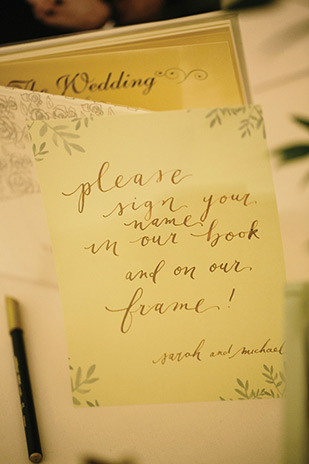 The Wedding
please
sign your
name
in our book
and on our
frame!
sarah and michael